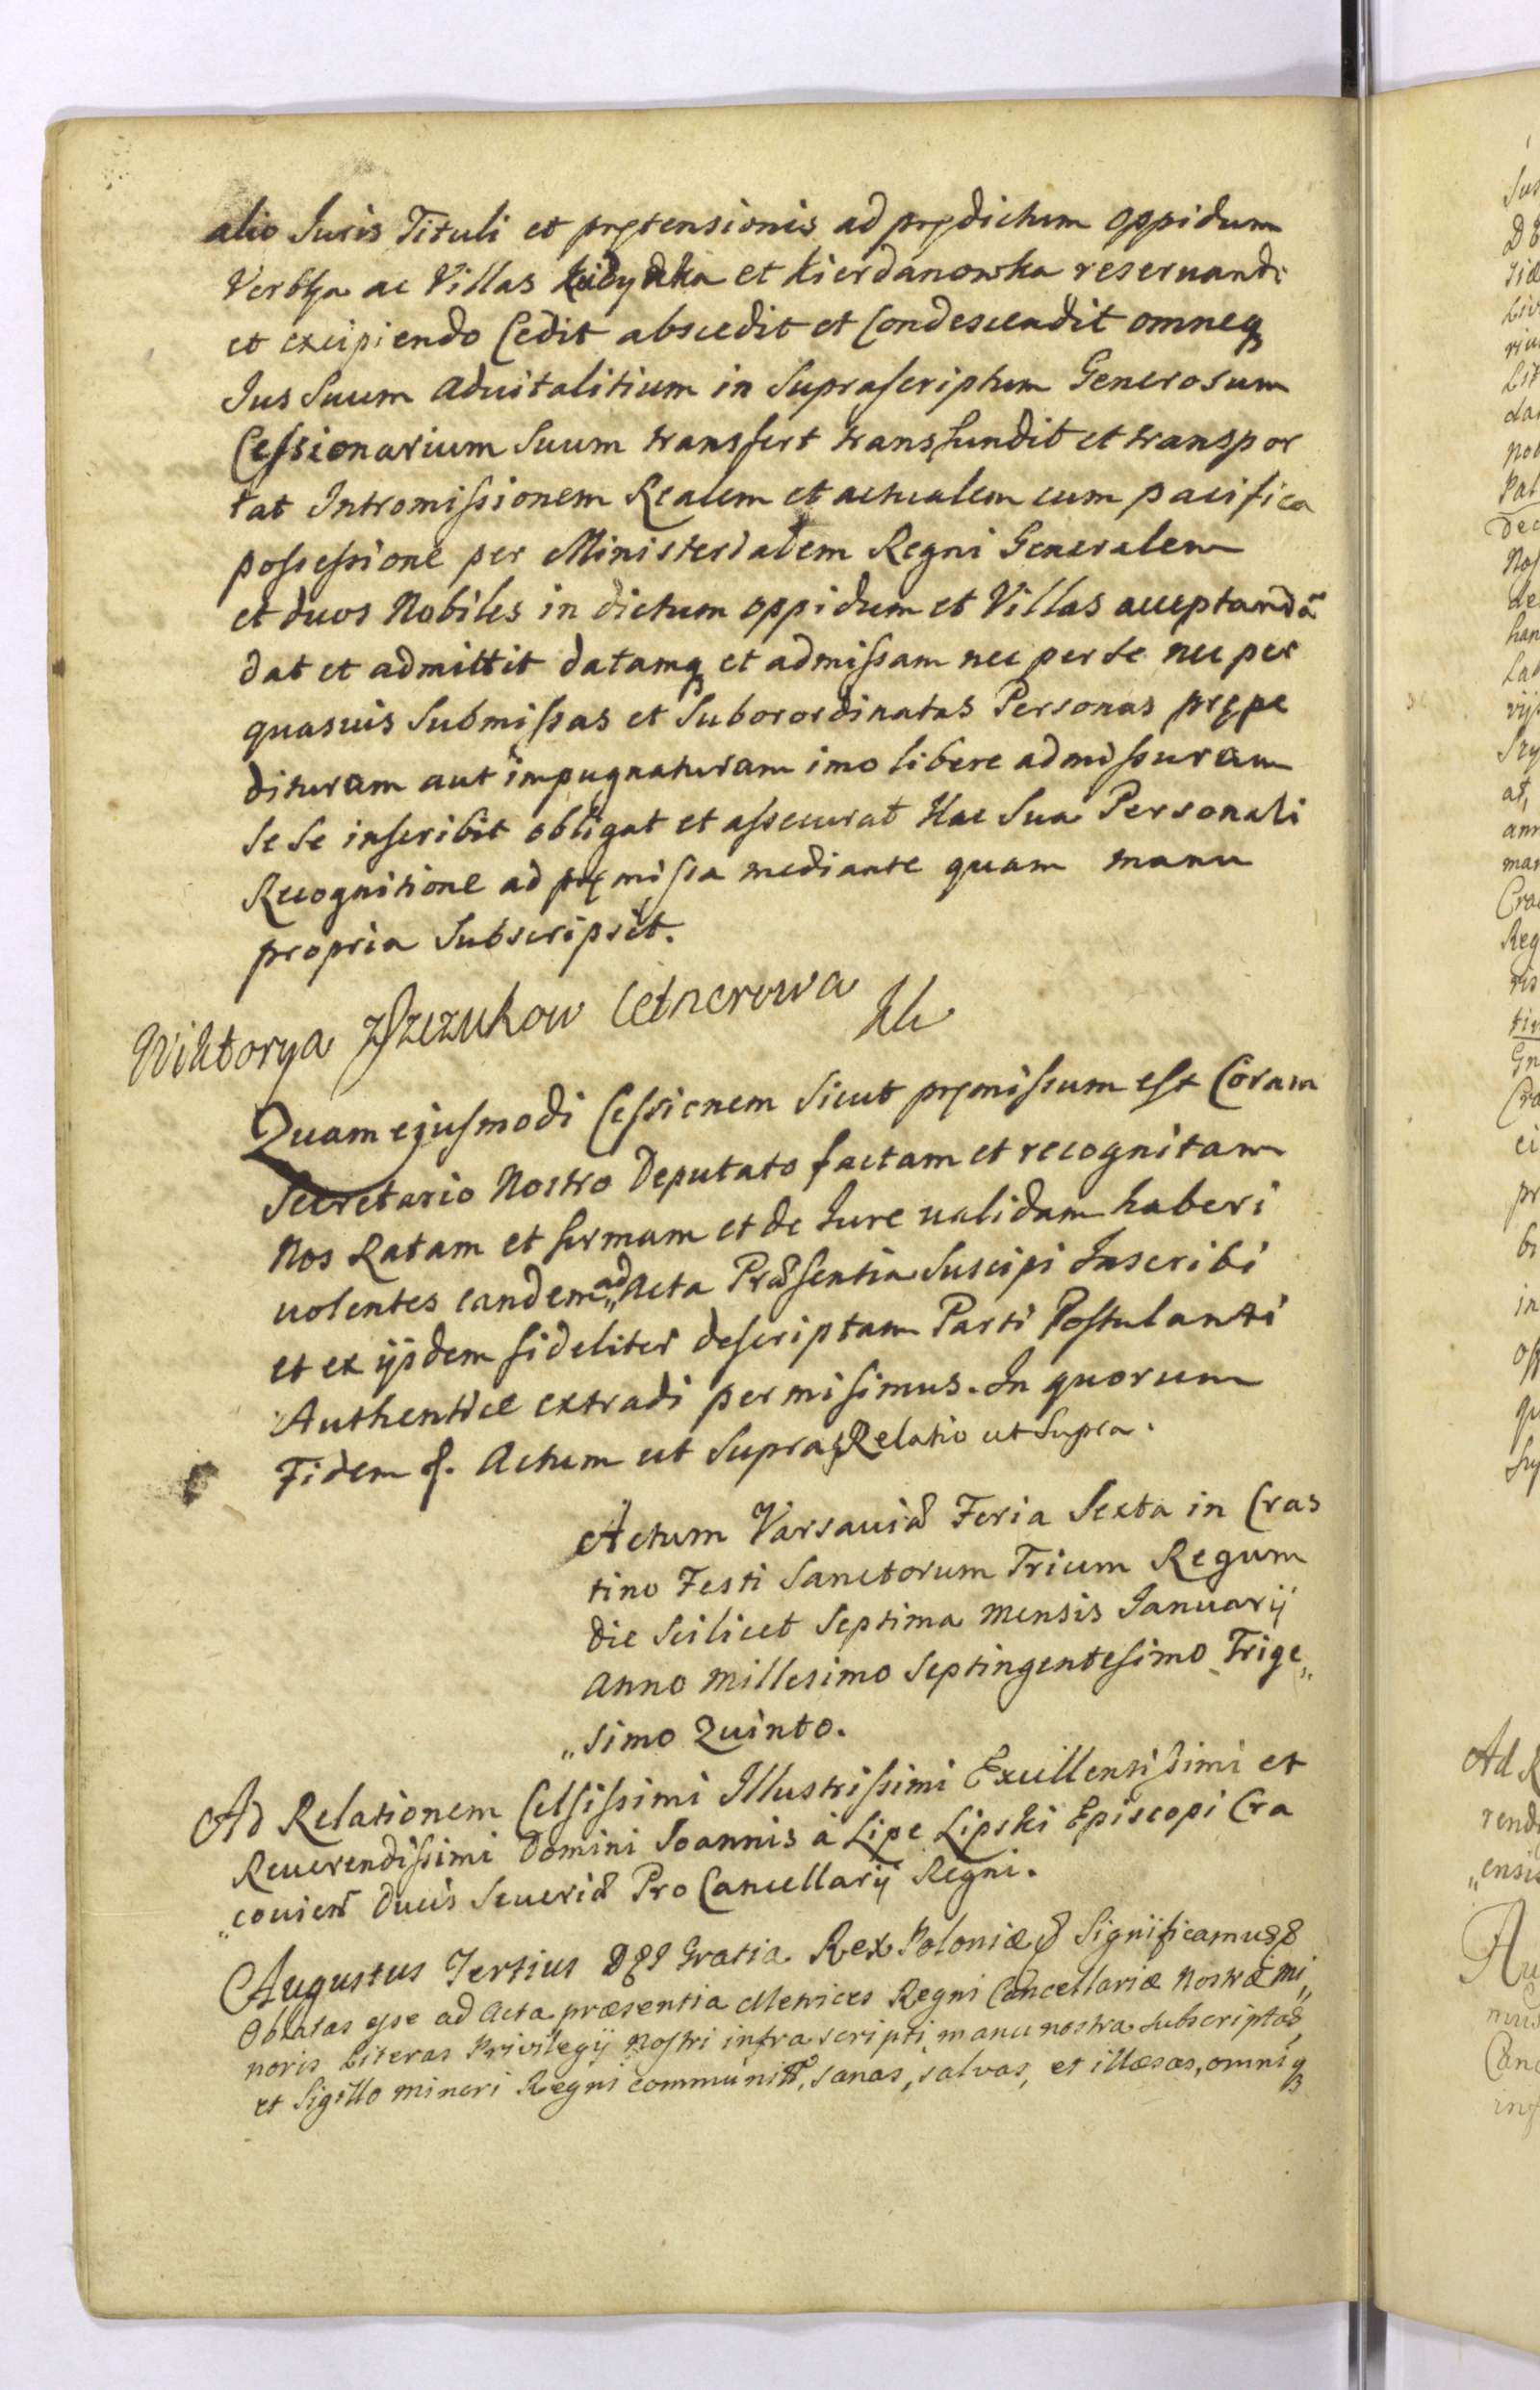 alio Juris Tituli et prętensionis ad prędictum oppidum
Verbza ac Villas et Kierdanowka reseruandi
et excipiendo Cedit abscedit et Condescendit omneq
Jus Suum Aduitalitium in Suprascriptum Generosum
Cessionarium Suum transfert transfundit et transpor
tat Intromissionem Realem et actualem cum pacifica
possessione per Ministerialem Regni Generalem
et duos Nobiles in dictum oppidum et Villas acceptandã
dat et admittit datamq et admissam nec per se nec per
quasuis Submissas et Suborordinatas Personas prępe
dituram aut impugnaturam imo libere admissuram
Se Se inscribit obligat et assecurat Hac Sua Personali
Recognitione ad pręmissa mediante quam manu
propria Subscripsit.
Wiktorya z Szczukow Cetnerowa
Quam ejusmodi Cessionem Sicut pręmissum est Coram
Secretario Nostro Deputato factam et recognitam
Nos Ratam et firmam et de Jure ualidam haberi
uolentes eandem ad Acta Præsentia Suscipi Inscribi
et ex ijsdem fideliter descriptam Parti Postulanti
Authentice extradi permisimus. In quorum
Fidem &. Actum ut Supra & Relatio ut Supra.
Actum Varsauiæ Feria Sexta in Cras
tino Festi Sanctorum Trium Regum
die Scilicet Septima Mensis Januarij
Anno Millesimo Septingentesimo Trige„
„simo Quinto.
Ad Relationem Celsissimi Illustrissimi Excellentissimi et
Reuerendissimi Domini Joannis à Lipe Lipski Episcopi Cra
„couien Ducis Seueriæ Pro Cancellarij Regni.
Augustus Tertius DEI Gratia Rex Poloniæ & Significamus &
Oblatas esse ad Acta præsentia Metrices Regni Cancellariæ Nostræ Mi„
noris Literas Privilegij Nostri infra scripti, manu nostra subscriptas,
et Sigillo minori Regni communitas, sanas, salvas, et illæsas, omniq